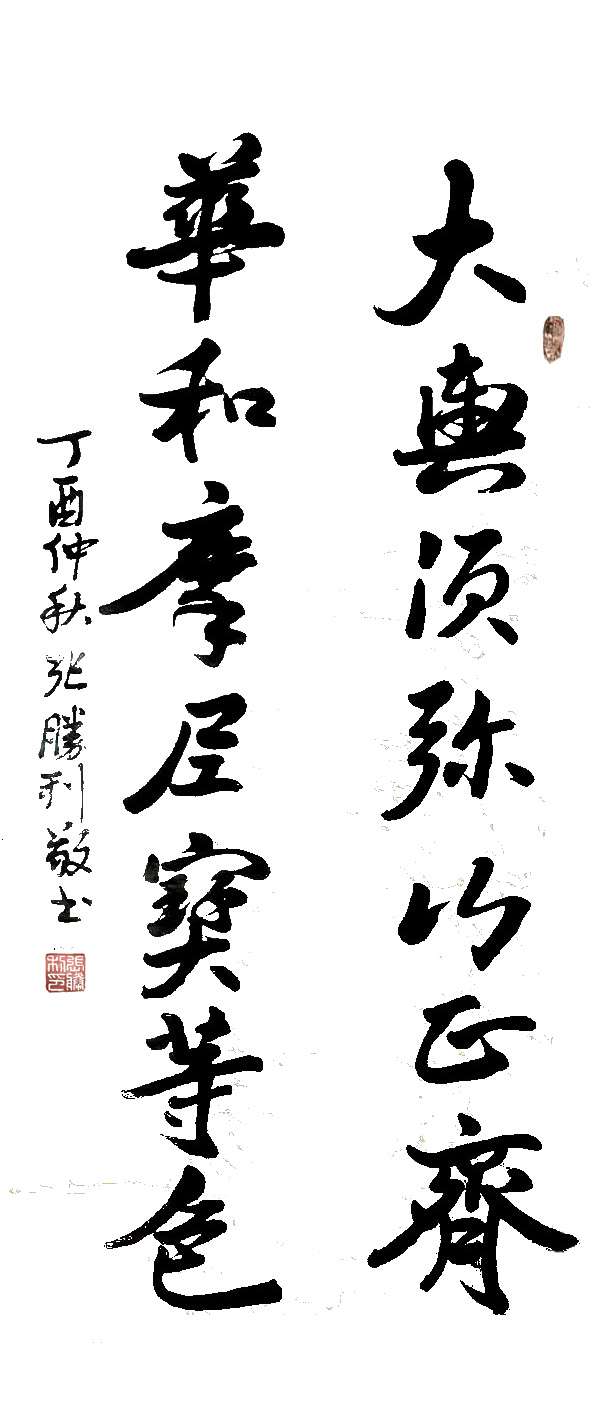 大與须弥山正齊
華和摩尼寶等色
丁酉仲秋张勝利敬书
張勝利印